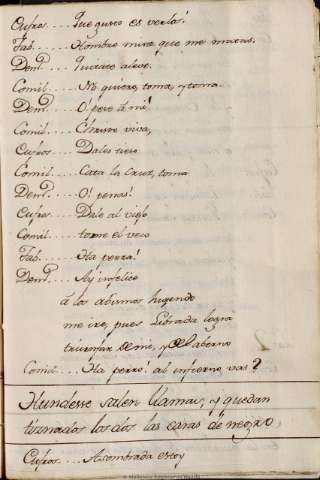 Eufros.... Que gusto es verlos!
Fab....... Hombre mira que me matas.
Demo..... Quitate aleve.
Comil.... No quiero, toma, y toma.
Demo..... O! pese á mi!
Comil..... Christo viva,
Eufros.... Dales recio
Comil..... Cata la Cruz, toma
Demo..... O! penas!
Eufros.... Dale al viejo
Comil..... tome el
Fab...... Ha perra!
Demo..... Ay infelice
á los abismos huyendo
me ire, pues Librada logra
triumfar de mi, y del aberno
Comil.... Ha perro! al infierno vas?
Hundese salen llamas, y quedan
tiznados los dos las caras de negro,
Eufros.... Asombrada estoy